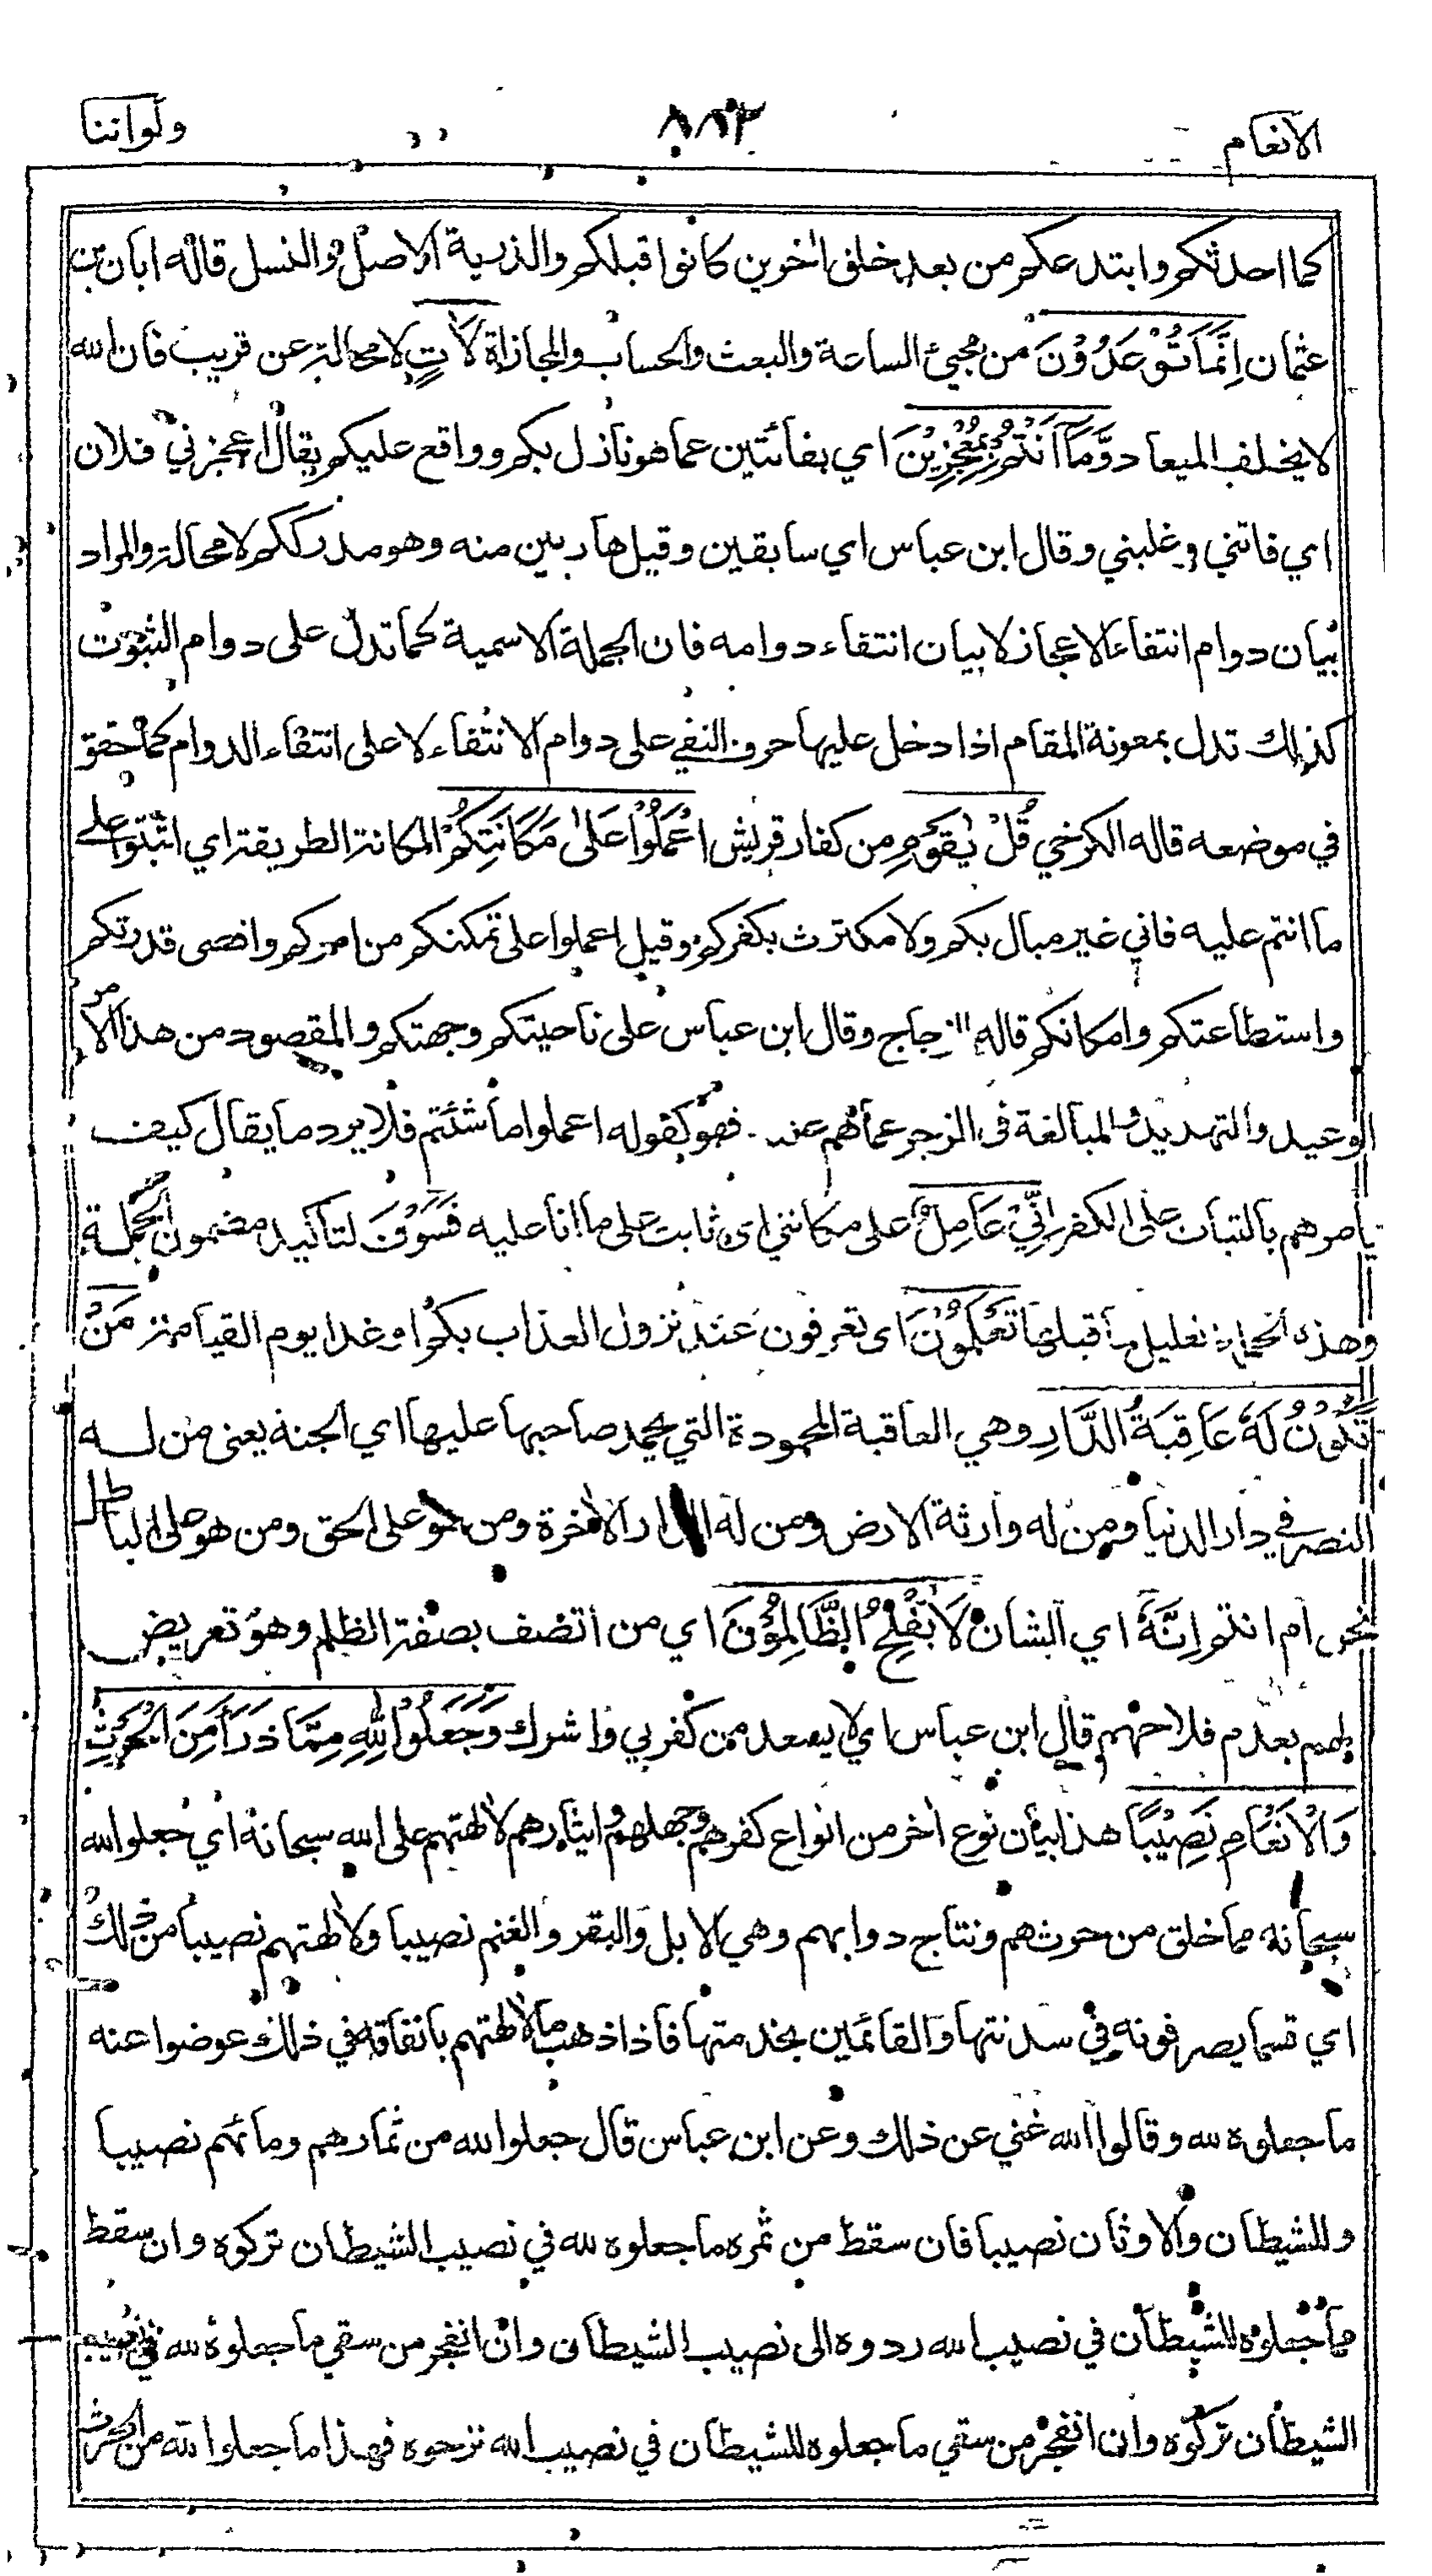 الانعام ٨٨٣ ولواننا
كما احدثكم وابتدعكم من بعد خلق اخرين كانوا قبلكم والذرية الاصل والنسل قاله ابان بن
عثمان اِنَّمَا تُوْعَدُوْنَ من مجيئ الساعة والبعث والحساب والمجازاة لَاٰتٍ لامحالة عن قريب فان الله
لايخلف الميعاد وَّمَآ اَنْتُمْ بِمُعْجِزِيْنَ اي بفائتين عما هو نازل بكم وواقع عليكم يقال اعجزني فلان
اي فاتني وغلبني وقال ابن عباس اي سابقين وقيل هاربين منه وهو مدرككم لامحالة والمراد
بيان دوام انتفاء الاعجاز لابيان انتفاء دوامه فان الجملة الاسمية كما تدل على دوام الثبوت
كذلك تدل بمعونة المقام اذا دخل عليها حرف النفي على دوام الانتفاء لا على انتفاء الدوام كما حقق
في موضعه قاله الكرخي قُلْ يٰقَوْمِ من كفار قريش اعْمَلُوْا عَلٰى مَكَانَتِكُمْ المكانة الطريقة اي اثبتوا على
ما انتم عليه فاني غير مبال بكم ولا مكترث بكفركم وقيل اعملوا على تمكنكم من امركم واقصى قدرتكم
واستطاعتكم وامكانكم قاله الزجاج وقال ابن عباس على ناحيتكم وجهتكم والمقصود من هذا الامر
الوعيد والتهديد والمبالغة في الزجر عما هم عليه فهو كقوله اعملوا ما شئتم فلا يرد ما يقال كيف
يأمرهم بالثبات على الكفر اِنِّيْ عَامِلٌ على مكانتي اى ثابت على ما انا عليه فَسَوْفَ لتاكيد مضمون الجملة
وهذه الجملة تعليل ما قبلها تَعْلَمُوْنَ اى تعرفون عند نزول العذاب بكم او غدا يوم القيامة مَنْ
تَكُوْنُ لَهٗ عَاقِبَةُ الدَّارِ وهي العاقبة المحمودة التي يحمد صاحبها عليها اي الجنة يعنى من له
النصر في دار الدنيا ومن له وارثة الارض ومن له الدار الاخرة ومن هو على الحق ومن هو على الباطل
نحن ام انتم اِنَّهٗ اي الشان لَا يُفْلِحُ الظَّالِمُوْنَ اي من اتصف بصفة الظلم وهو تعريض
لهم بعدم فلاحهم قال ابن عباس اي لا يسعد من كفر بي واشرك وَجَعَلُوْا لِلّٰهِ مِمَّا ذَرَاَ مِنَ الْحَرْثِ
وَالْاَنْعَامِ نَصِيْبًا هذا بيان نوع اخر من انواع كفرهم وجهلهم وايثارهم لالهتهم على الله سبحانه اي جعلوا لله
سبحانه مما خلق من حرثهم ونتاج دوابهم وهي الابل والبقر والغنم نصيبا ولالهتهم نصيبا من ذلك
اي قسما يصرفونه في سدنتها والقائمين بخدمتها فاذا ذهب ما لالهتهم بانفاقه في ذلك عوضوا عنه
ما جعلوه لله وقالوا الله غني عن ذلك وعن ابن عباس قال جعلوا لله من ثمارهم ومائهم نصيبا
وللشيطان والاوثان نصيبا فان سقط من ثمره ما جعلوه لله في نصيب الشيطان تركوه وان سقط
مما جعلوه للشيطان في نصيب الله ردوه الى نصيب الشيطان وان انفجر من سقي ما جعلوه لله في نصيب
الشيطان تركوه وان انفجر من سقي ما جعلوه للشيطان في نصيب الله نزحوه فهذا ما جعلوا لله من الحرث